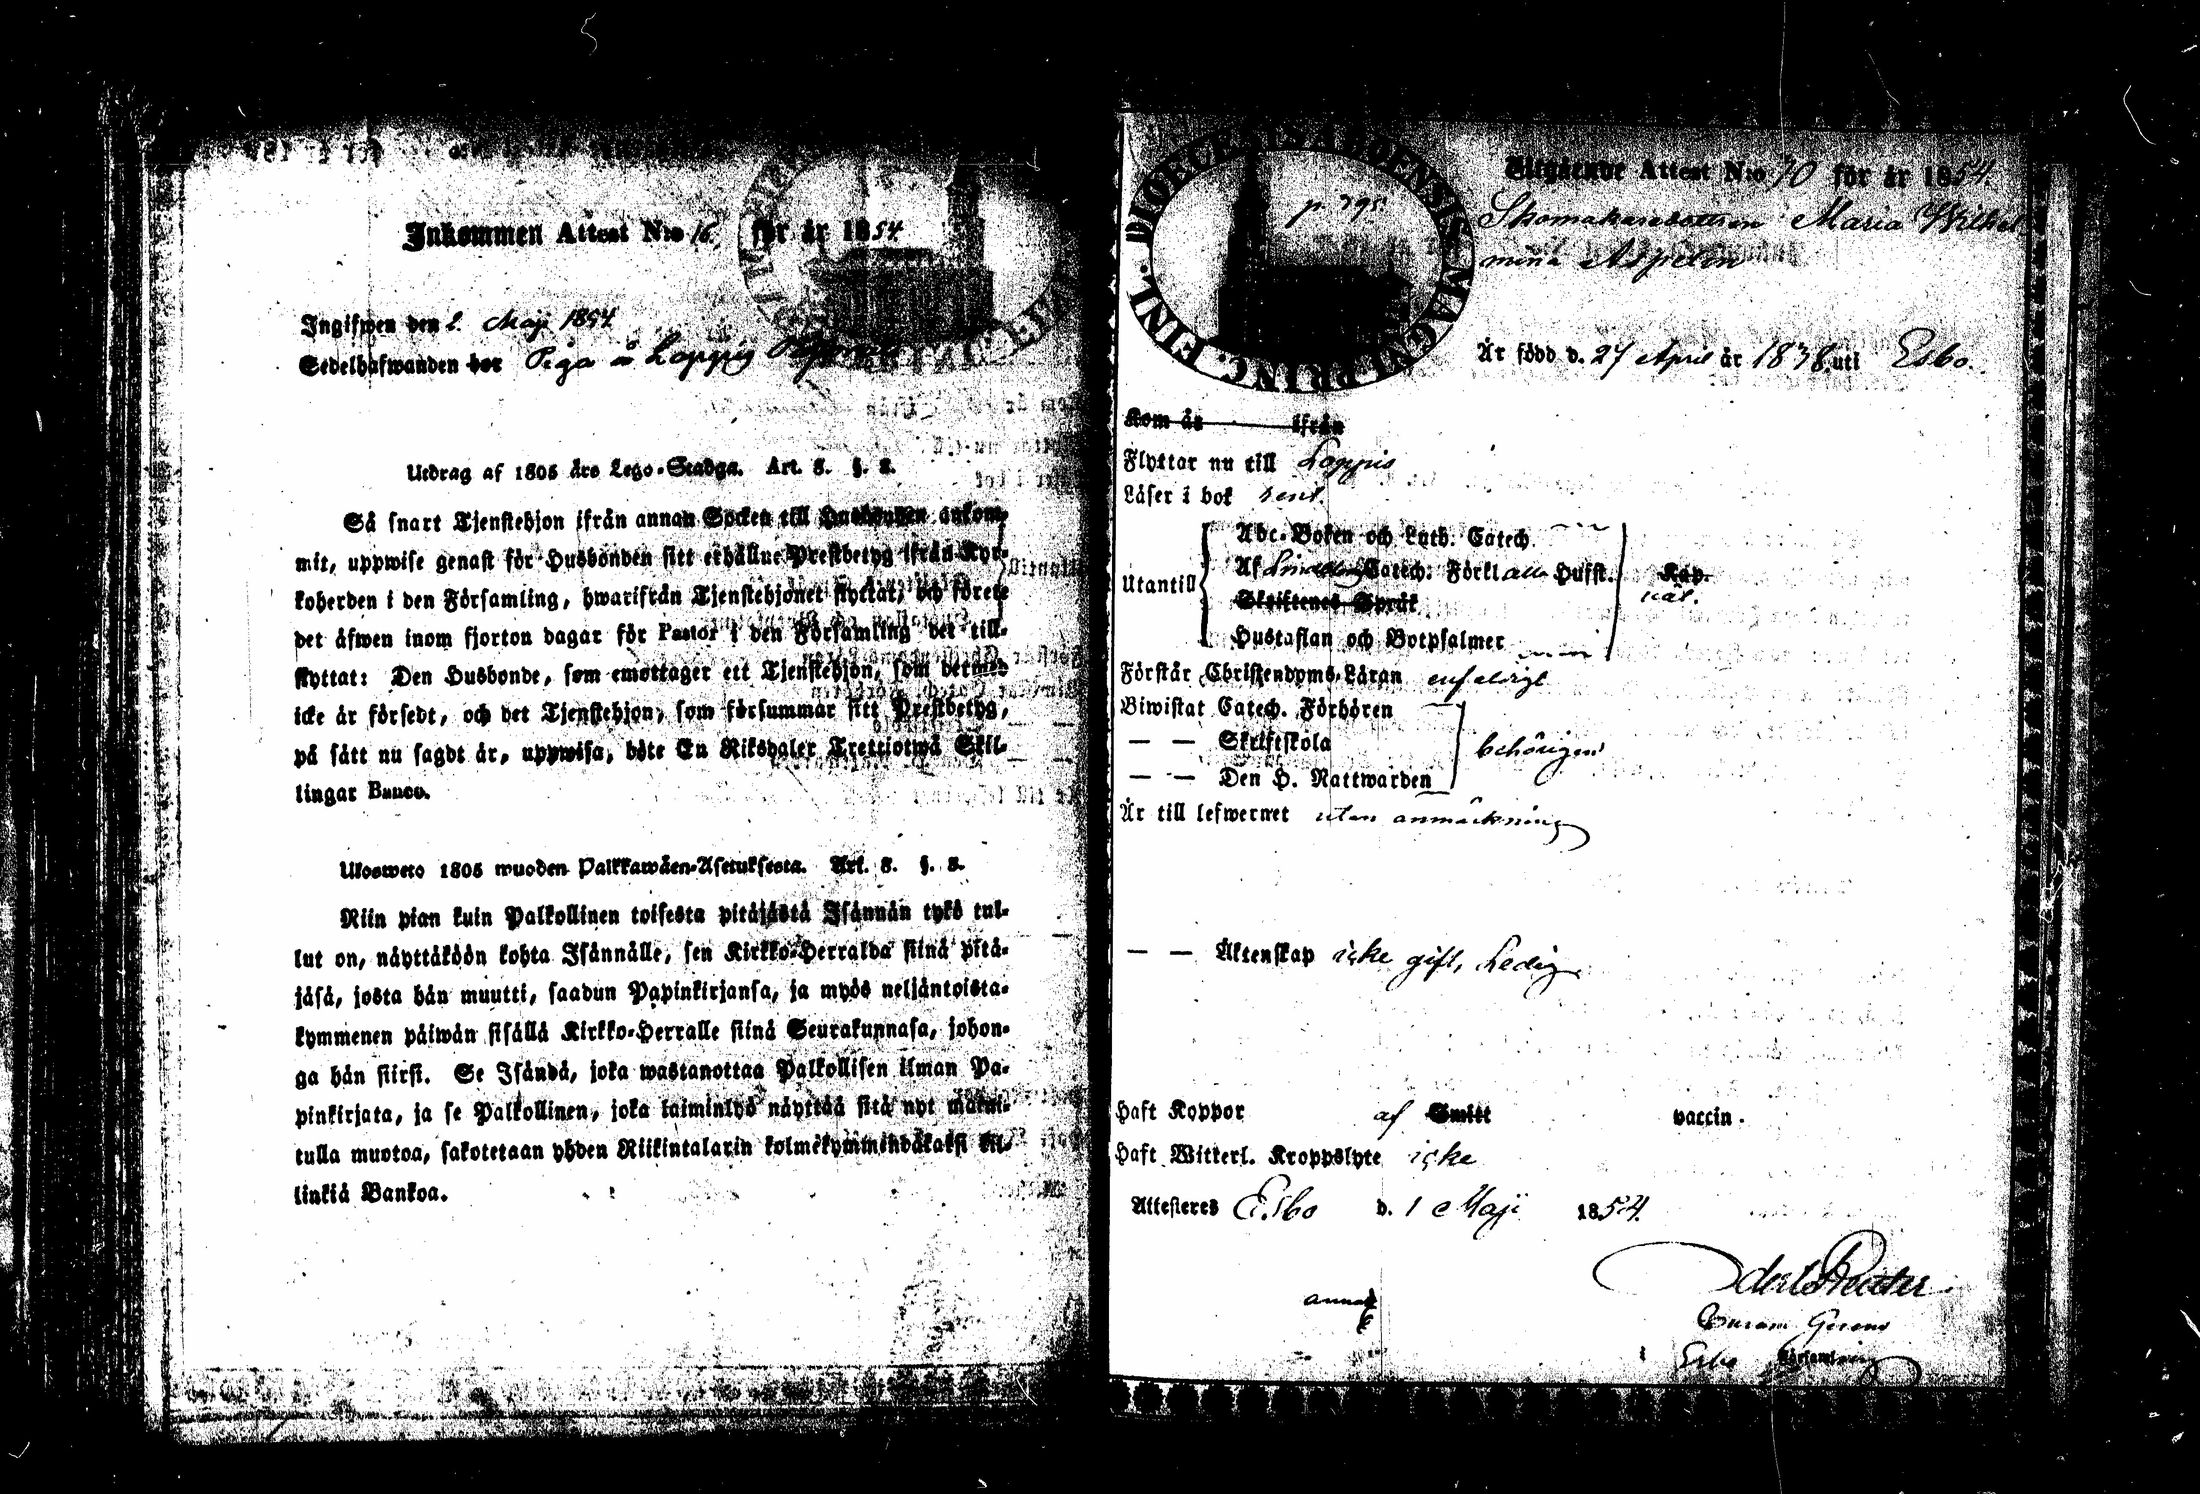 Inkommen Attest N:o 16. för år 1854.
Ingifwen den 2 Maji 1854
Sedelhafwanden bor Piga å Loppis
Utdrag af 1805 års Lego-Stadga. Art. 8. §. 2.
Så snart Tjenstehjon ifrån annan Socken till Husbonden ankom-
mit, uppwise genast för Husbonden sitt erhållne Prestbetyg ifrån Kyr-
koherden i den Församling, hwarifrån Tjenstehjonet flyttat, och förete
det äfwen inom fjorton dagar för Pastor i den Församling det till-
flyttat: Den Husbonde, som emottager ett Tjenstehjon, som dermed
icke är försedt, och det Tjenstehjon, som försummar sitt Prestbetyg,
på sätt nu sagdt är, uppwisa, böte En Riksdaler Trettiotwå Skil-
lingar Banco.
Ulosweto 1805 wuoden Palkkawäen-Asetuksesta. Art. 8. §. 2.
Niin pian kuin Palkollinen toisesta pitäjästä Isännän tykö tul-
lut on, näyttäköön kohta Isännälle, sen Kirkko-Herralda siinä pitä-
jäsä, josta hän muutti, saadun Papinkirjansa, ja myös neljäntoista-
kymmenen päiwän sisällä Kirkko-Herralle siinä Seurakunnasa, johon-
ga hän siirsi. Se Isändä, joka wastanottaa Palkollisen ilman Pa-
pinkirjata, ja se Palkollinen, joka laiminlyö näyttää sitä nyt mainit-
tulla muotoa, sakotetaan yhden Riikintalarin kolmekymmendäkaksi kil-
linkiä Bankoa.
DIOECESIS ABOENSIS MAGNI PRINC. FINL.
p. 395.
Utgående Attest N:o 70 för år 1854.
Skomakaredottren Maria Wilhel
mina Aspelin
Är född d. 27 April år 1838. uti Esbo.
Kom år ifrån
Flyttar nu till Loppis
Läser i bok rent.
Utantill
Abc-Boken och Luth. Catech.
Af Catech: Förkl alla Hufst. Kap.
Skriftenes Språk
Hustaflan och Botpsalmer
Förstår Christendoms-Läran enfaldigt
Biwistat Catech. Förhören
— — Skriftskola behörigen
— — Den H. Nattwarden
Är till lefwernet utan anmärkning
— — Äktenskap icke gift, Ledig.
Haft Koppor af Smitt vaccin.
Haft Witterl. Kroppslyte icke
Attesteres Esbo d. 1 Maji 1854.
Esbo Församling